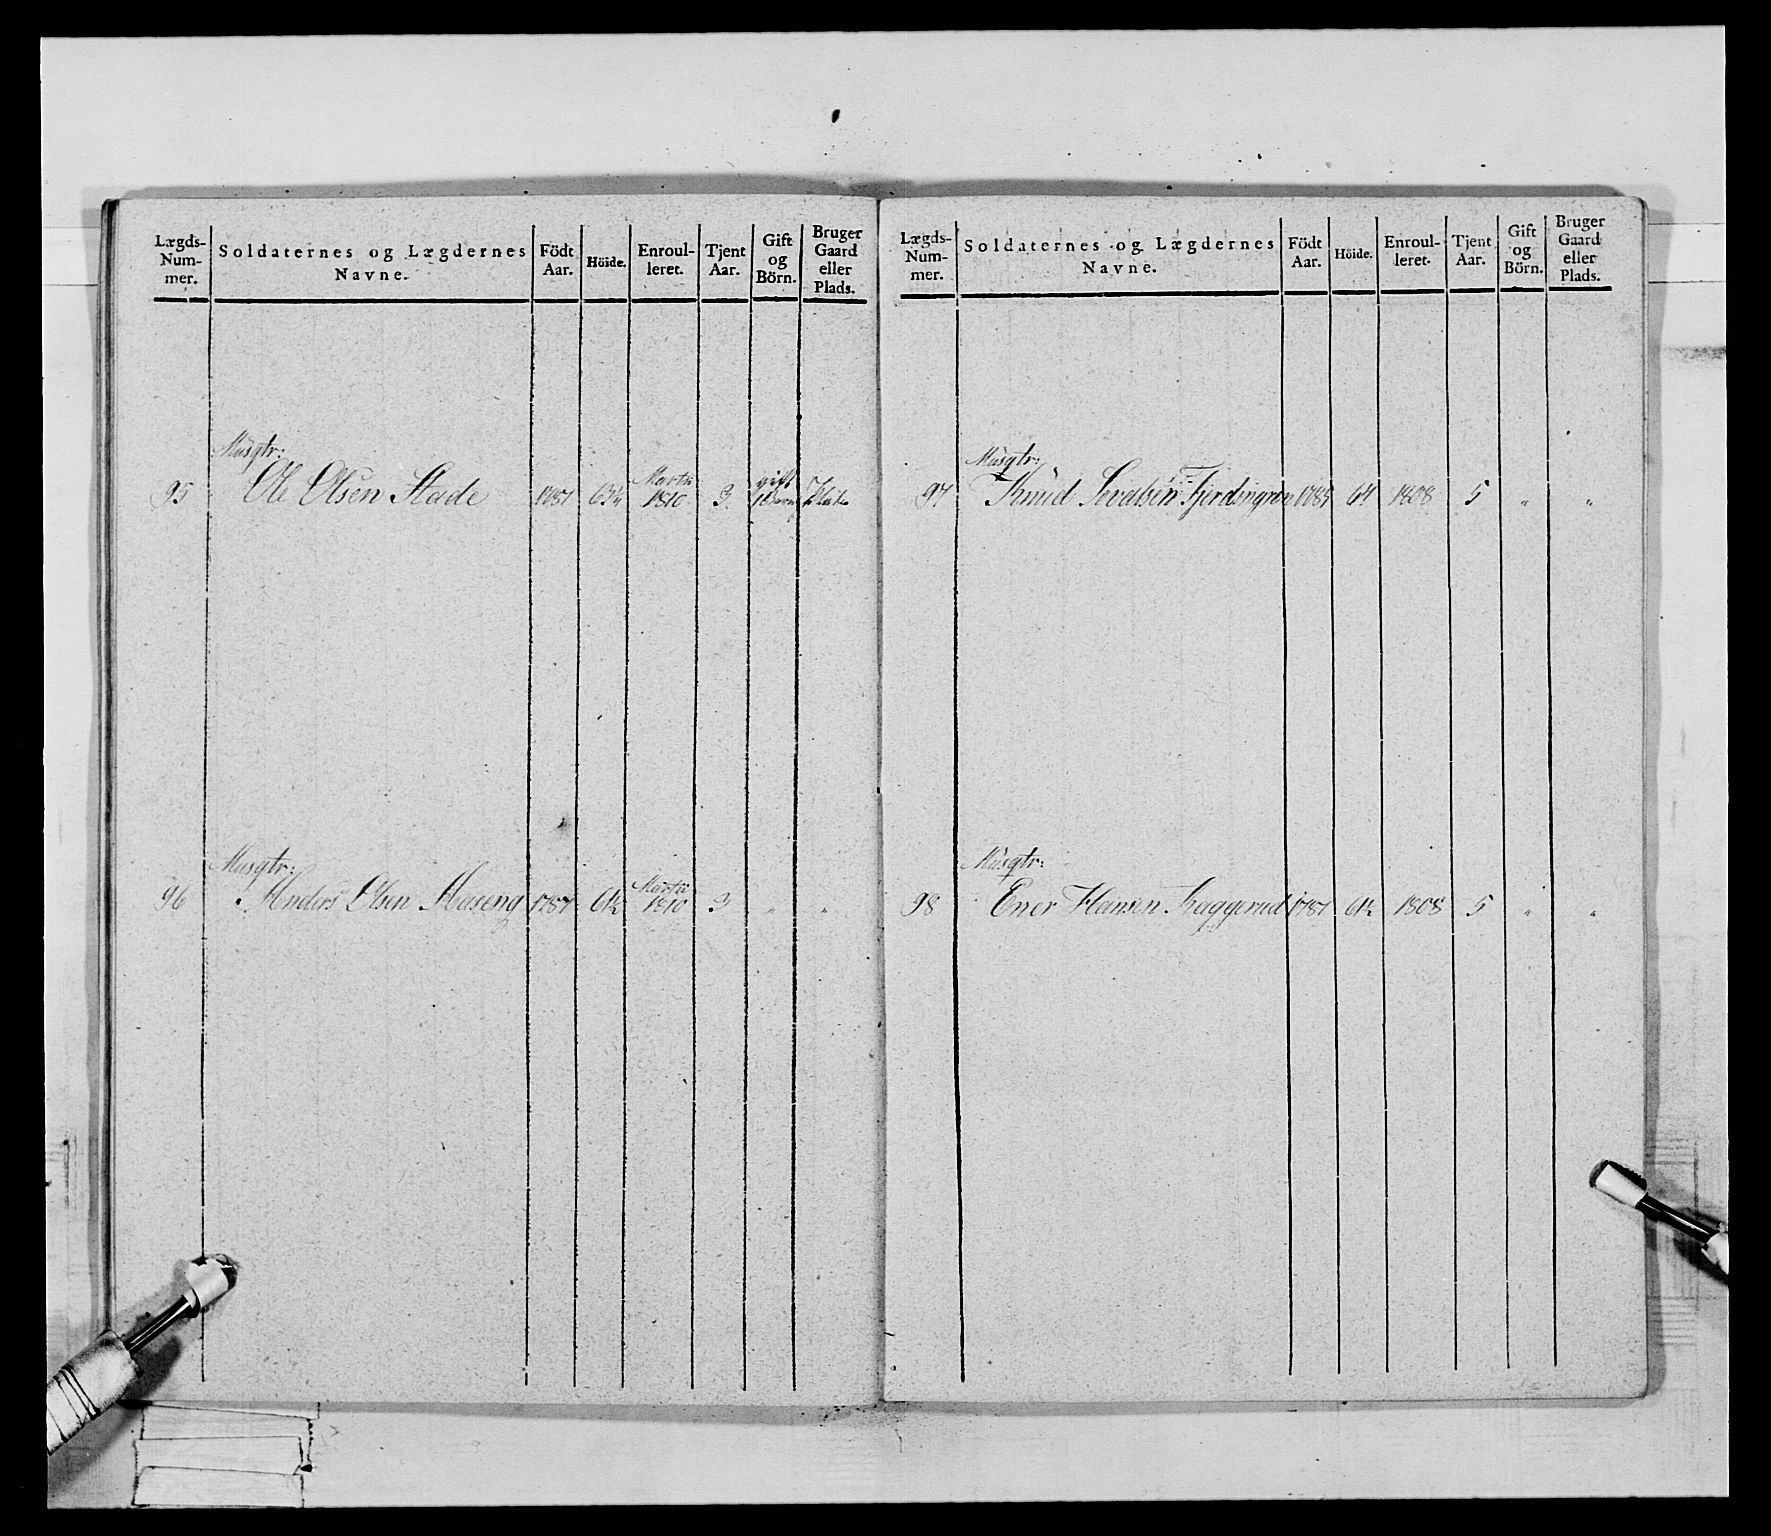 Lægds-Num-mer. Soldaternes og Lægdernes Navne. Födt Aar. Höide. Enroul-leret. Tjent Aar. Gift og Börn. Bruger Gaard eller Plads.
Musqtr:
95 Ole Olsen Stade 1787 63½ Martii 1810 3 gift 1 Barn Plads
Musqtr:
96 Anders Olsen Moseng 1787 61½ Martii 1810 3 " "
Lægds-Num-mer. Soldaternes og Lægdernes Navne. Födt Aar. Höide. Enroul-leret. Tjent Aar. Gift og Börn. Bruger Gaard eller Plads.
Musqtr:
97 Knud 64 1808 5 " "
Musqtr:
98 Ener Hansen Kaggerud 1787 61½ 1808 5 " "